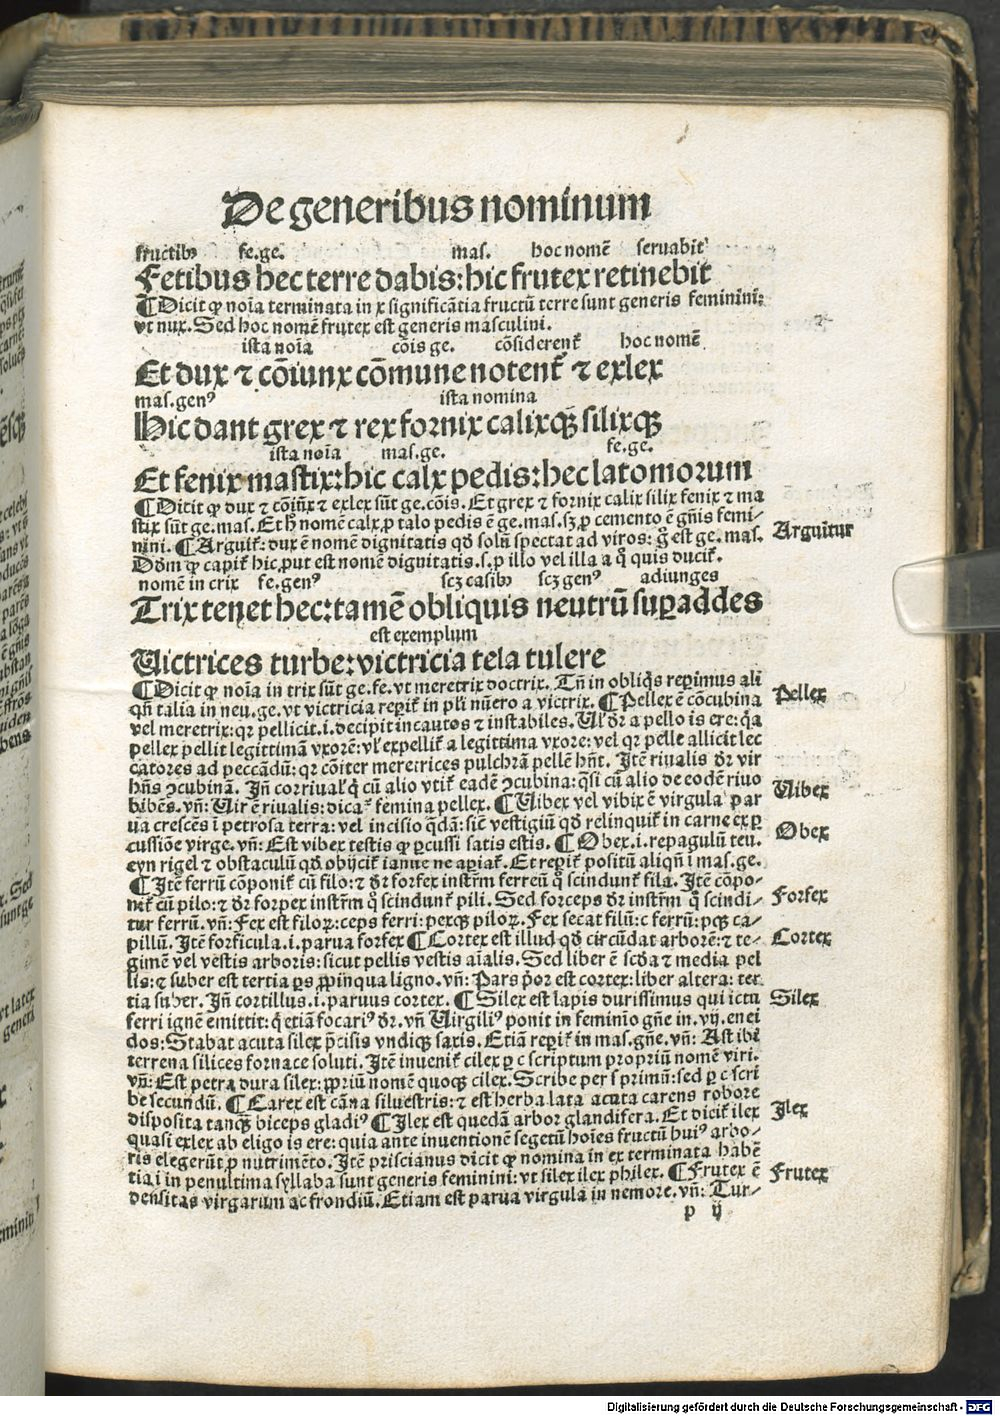 De generibus nominum
fructibꝰ fe.ge. mas. hoc nomē seruabit
Fetibus hec terre dabis: hic frutex retinebit
¶Dicit ꝙ noīa terminata in x significātia fructū terre sunt generis feminini:
vt nux. Sed hoc nomē frutex est generis masculini.
ista noīa cōis ge. cōsiderent᷑ hoc nomē
Et dux ⁊ cōiunx cōmune notent᷑ ⁊ exlex
mas.genꝰ ista nomina
Hic dant grex ⁊ rex fornix calixqꝫ silixqꝫ
ista noīa mas.ge. fe.ge.
Et fenix mastix: hic calx pedis: hec latomorum
¶Dicit ꝙ dux ⁊ cōiūx ⁊ exlex sūt ge.cōis. Et grex ⁊ fornix calix silix fenix ⁊ ma
stix sūt ge.mas. Et h̄ nomē calx ꝓ talo pedis ē ge.mas. sꝫ ꝓ cemento ē gn̄is femi-
nini. ¶Arguit᷑: dux ē nomē dignitatis qd̄ solū spectat ad viros: g̊ est ge. mas.
Dōm ꝙ capit᷑ hic, put est nomē dignitatis .s. ꝓ illo vel illa a q̊ quis ducit᷑.
Arguūtur
nomē in trix fe.genꝰ scꝫ casibꝰ scꝫ genꝰ adiunges
Trix tenet hec: tamē obliquis neutrū suꝑaddes
est exemplum
Victrices turbe: victricia tela tulere
¶Dicit ꝙ noīa in trix sūt ge.fe. vt meretrix doctrix. Tn̄ in obliq̇s reꝑimus ali
qn̄ talia in neu.ge. vt victricia reꝑit᷑ in pl̄i nūero a victrix. ¶Pellex ē cōcubina
Pellex
vel meretrix: qr pellicit .i. decipit incautos ⁊ instabiles. Vl̓ dr̄ a pello is ere: q̄a
pellex pellit legittimā vxorē: vl̓ expellit᷑ a legittima vxore: vel qr pelle allicit lec
catores ad peccādū: qr cōiter meretrices pulchrā pellē hn̄t. Itē riualis dr̄ vir
hn̄s ↄcubinā. Jn̄ corriual̓ q̇ cū alio vtit᷑ eadē ↄcubina: q̄si cū alio de eodē riuo
bibēs. vn̄: Vir ē riualis: dicat᷑ femina pellex. ¶Vibex vel vibix ē virgula par
Vibex
ua crescēs ī petrosa terra: vel incisio q̄dā: siue vestigiū qd̄ relinquit᷑ in carne ex ꝑ
cussiōe virge. vn̄: Est vibex testis q̊ ꝑcussi satis estis. ¶Obex .i. repagulū teu.
Obex
eyn rigel ⁊ obstaculū qd̄ obijcit᷑ ianue ne aꝑiat᷑. Et reꝑit᷑ positū aliqn̄ ī mas.ge.
¶Itē ferrū cōponit᷑ cū filo: ⁊ dr̄ forfex instr̄m ferreū q̊ scindunt᷑ fila. Itē cōpo-
nit᷑ cū pilo: ⁊ dr̄ forpex instr̄m q̊ scindunt᷑ pili. Sed forceps dr̄ instr̄m q̊ scindi-
Forfex
tur ferrū. vn̄: Fex est filoꝝ: ceps ferri: perqꝫ piloꝝ. Fex secat filū: c ferrū: pqꝫ ca-
pillū. Itē forficula .i. parua forfex ¶Cortex est illud qd̄ circūdat arborē: ⁊ te-
Cortex
gimē vel vestis arboris: sicut pellis vestis aīalis. Sed liber ē scd̄a ⁊ media pel
lis: ⁊ suber est tertia ꝑs ꝓpinqua ligno. vn̄: Pars p̄or est cortex: liber altera: ter
tia suber. Jn̄ cortillus .i. paruus cortex. ¶Silex est lapis durissimus qui ictu
Silex
ferri ignē emittit: q̇ etiā focariꝰ dr̄. vn̄ Virgiliꝰ ponit in feminīo gn̄e in .vij. enei
dos: Stabat acuta silex p̄cisis vndiqꝫ saxis. Etiā reꝑit᷑ in mas.gn̄e. vn̄: Ast ibi
terrena silices fornace soluti. Itē inuenit᷑ cilex ꝑ c scriptum propriū nomē viri.
vn̄: Est petra dura silex: ꝓpriū nomē quoqꝫ cilex. Scribe per s primū: sed ꝑ c scri
be secundū. ¶Carex est cāna siluestris: ⁊ est herba lata acuta carens robore
disposita tanqꝫ biceps gladiꝰ ¶Ilex est quedā arbor glandifera. Et dicit᷑ ilex
Ilex
quasi exlex ab eligo is ere: quia ante inuentionē segetū hoīes fructū huiꝰ arbo-
ris elegerūt ꝓ nutrimēto. Itē priscianus dicit ꝙ nomina in ex terminata habē
tia i in penultima syllaba sunt generis feminini: vt silex ilex philex. ¶Frutex ē
Frutex
densitas virgarum ac frondiū. Etiam est parua virgula in nemore. vn̄: Tur-
p ij
Digitalisierung gefördert durch die Deutsche Forschungsgemeinschaft - DFG